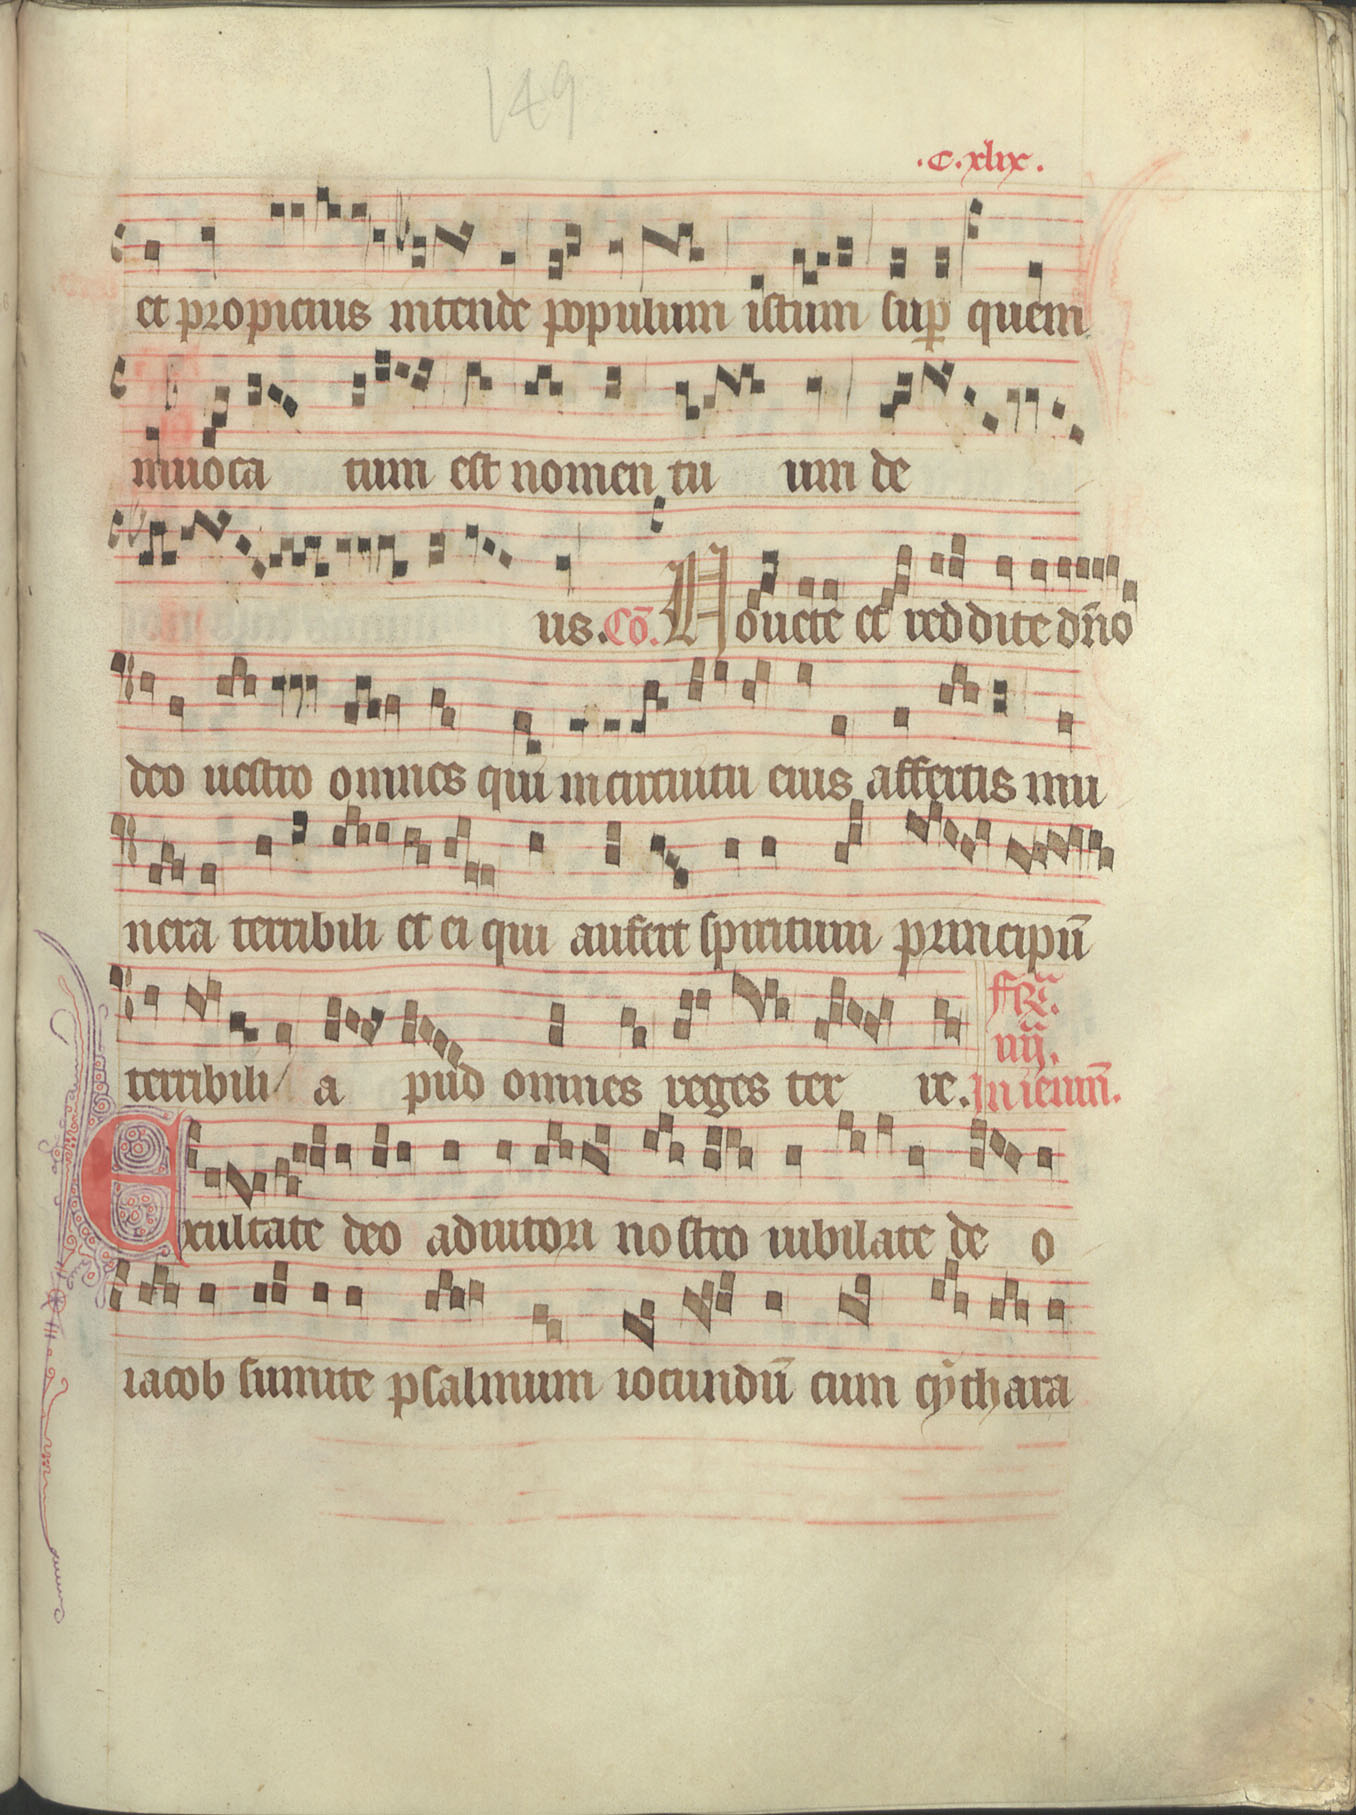 149
.C.xlix.
et propicius intende populum istum sup̲ quem
inuoca tum est nomen tu um de
us. Cō. Uouete et reddite dn̄o
deo uestro omnes qui in circuitu eius affertis mu
nera terribili et ei qui aufert spiritum principū
terribili a pud omnes reges ter re. In ieiun̄.
iiij.
Exultate deo adiutori nostro iubilate de o
iacob sumite psalmum iocundū cum cythara